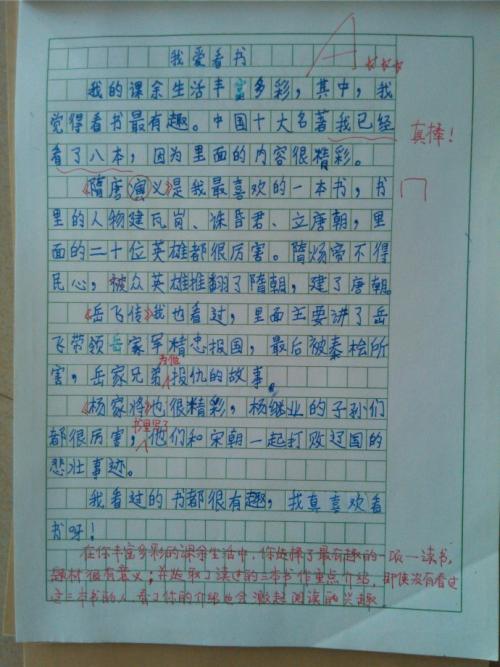 我爱看书
A
我的课余生活丰富多彩，其中，我
觉得看书最有趣。中国十大名著我已经
真棒！
看了八本，因为里面的内容很精彩。
《隋唐演义》是我最喜欢的一本书，书
里的人物建瓦岗、诛昏君、立唐朝，里
面的二十位英雄都很厉害。隋炀帝不得
民心，被众英雄推翻了隋朝，建了唐朝。
《岳飞传》我也看过，里面主要讲了岳
飞带领岳家军精忠报国，最后被秦桧所
为他
害，岳家兄弟报仇的故事。
《杨家将》也很精彩，杨继业的子孙们
书里写了
都很厉害，他们和宋朝一起打败辽国的
悲壮事迹。
我看过的书都很有趣，我真喜欢看
书呀！
在你丰富多彩的课余生活中，你选择了最有趣的一项—读书，
题材很有意义；并选取了读过的三本书作重点介绍，即使没有看过
这三本书的人，看了你的介绍也会激起阅读的兴趣